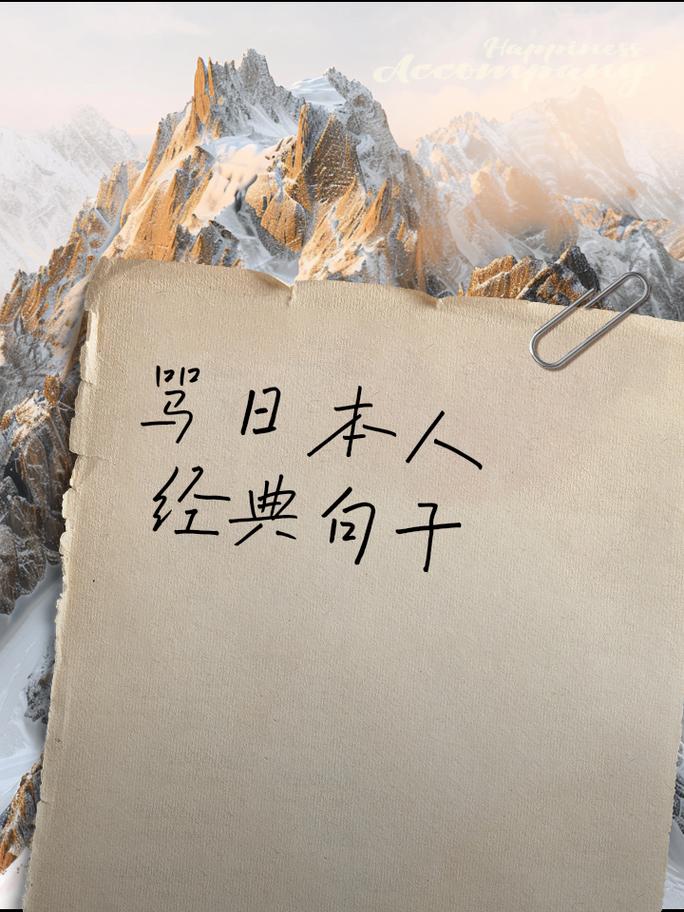 Happiness
Accompany
骂日本人
经典句子